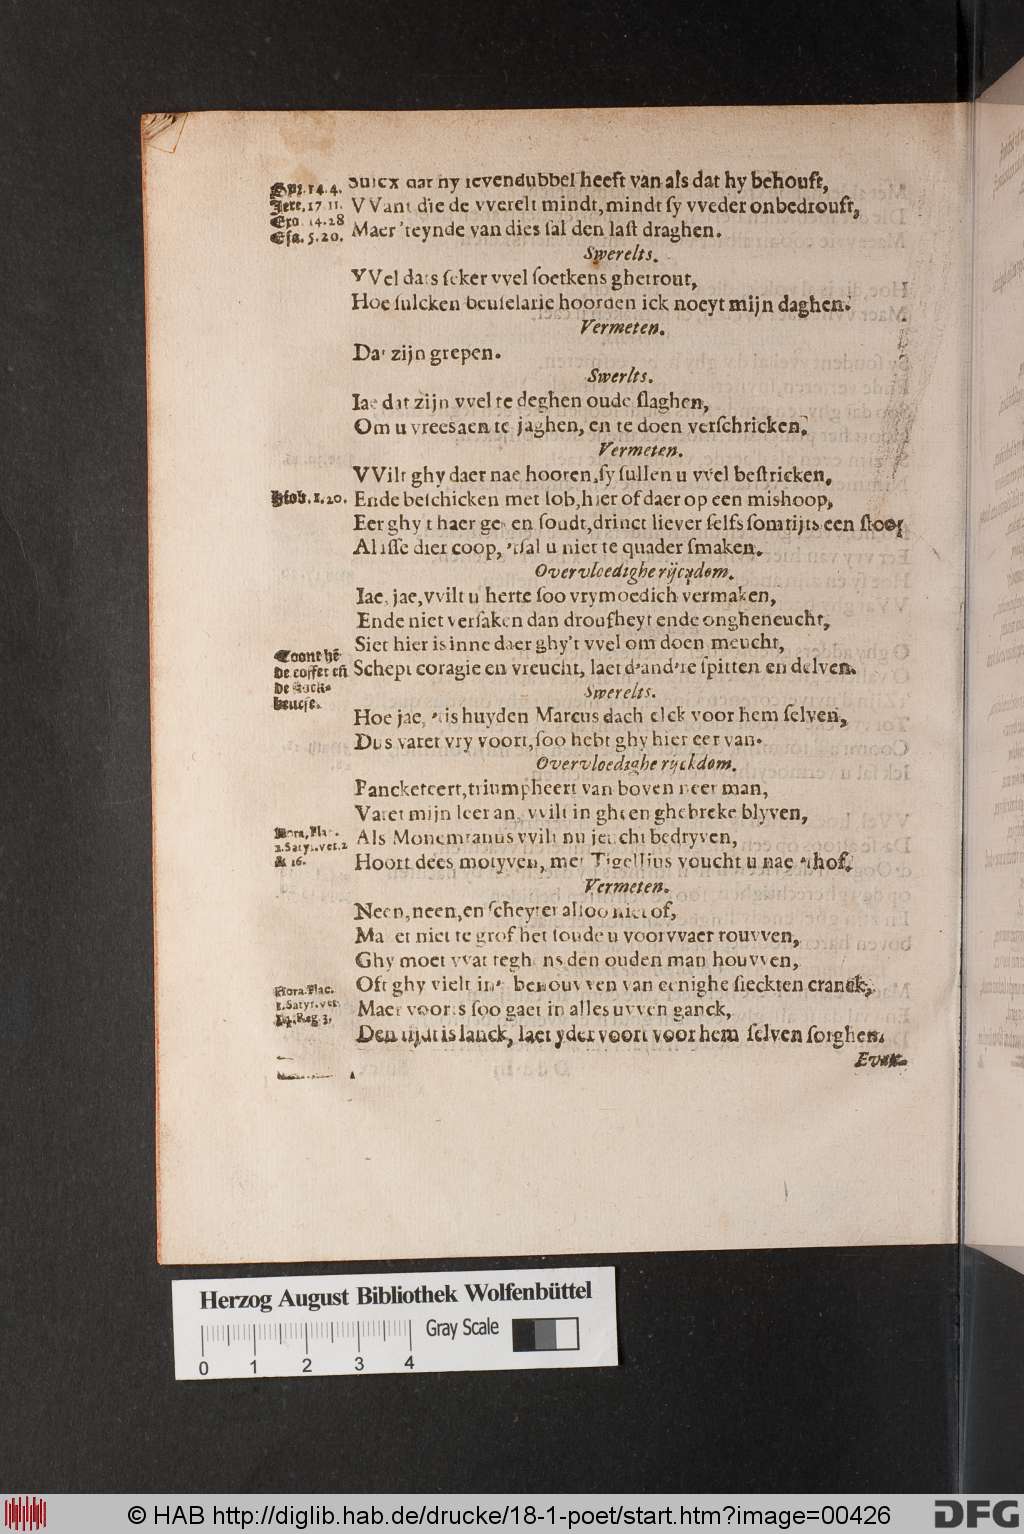 Sulcx dat hy sevendubbel heeft van als dat hy behouft,
Spr. 14. 4.
Jere. 17. 11.
Exo. 14. 28
Esa. 5. 20.
VVant die de vverelt mindt, mindt sy vveder onbedrouft,
Maer 'teynde van dies sal den last draghen.
Swerelts.
VVel dats seker vvel soetkens ghetrout,
Hoe sulcken beuselarie hoorden ick noeyt mijn daghen.
Vermeten.
Dat zijn grepen.
Swerlts.
Iae dat zijn vvel te deghen oude slaghen,
Om u vreesaen te jaghen, en te doen verschricken.
Vermeten.
VVilt ghy daer nae hooren, sy sullen u vvel bestricken,
Hiob. 1. 20.
Ende beschicken met Iob, hier of daer op een mishoop,
Eer ghy t haer geven soudt, drinct liever selfs somtijts een stoop
Al isse dier coop, 'tsal u niet te quader smaken.
Overvloedighe rijckdom.
Iae, jae, vvilt u herte soo vrymoedich vermaken,
Ende niet versaken dan droufheyt ende ongheneucht,
Siet hier is inne daer ghy't vvel om doen meucht,
Toont hē
de coffer eñ
de
beurse.
Schept coragie en vreucht, laet d'and're spitten en delven.
Swerelts.
Hoe jae, 'tis huyden Marcus dach elck voor hem selven,
Dus varet vry voort, soo hebt ghy hier eer van.
Overvloedighe rijckdom.
Pancketeert, triumpheert van boven neer man,
Vatet mijn leer an, vvilt in gheen ghebreke blyven,
Hora. Flac.
2. Satyr. ver. 2
& 16.
Als Monemtanus vvilt nu jeucht bedryven,
Hoort dees motyven, met Tigellius voucht u nae 'thof.
Vermeten.
Neen, neen, en scheytet alsoo niet of,
Maket niet te grof het soude u voorvvaer rouvven,
Ghy moet vvat teghens den ouden man houvven,
Hora. Flac.
1. Satyr. ver.
Reg. 3.
Oft ghy vielt int benouvven van eenighe sieckten cranck,
Maer voorts soo gaet in alles uvven ganck,
Den tijdt is lanck, laet yder voort voor hem selven sorghen.
Herzog August Bibliothek Wolfenbüttel
Gray Scale
0 1 2 3 4
© HAB http://diglib.hab.de/drucke/18-1-poet/start.htm?image=00426
DFG